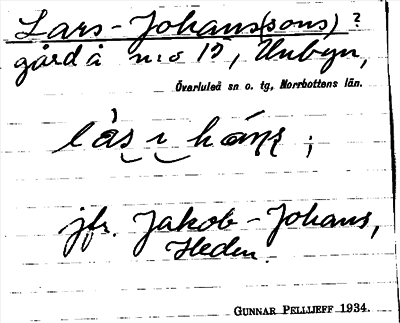 Lars-Johans(sons)?
gård å n:o 12, Unbyn,
Överluleå sn o. tg, Norrbottens län.
jfr. Jakob-Johans,
Heden.
GUNNAR PELLIJEFF 1934.